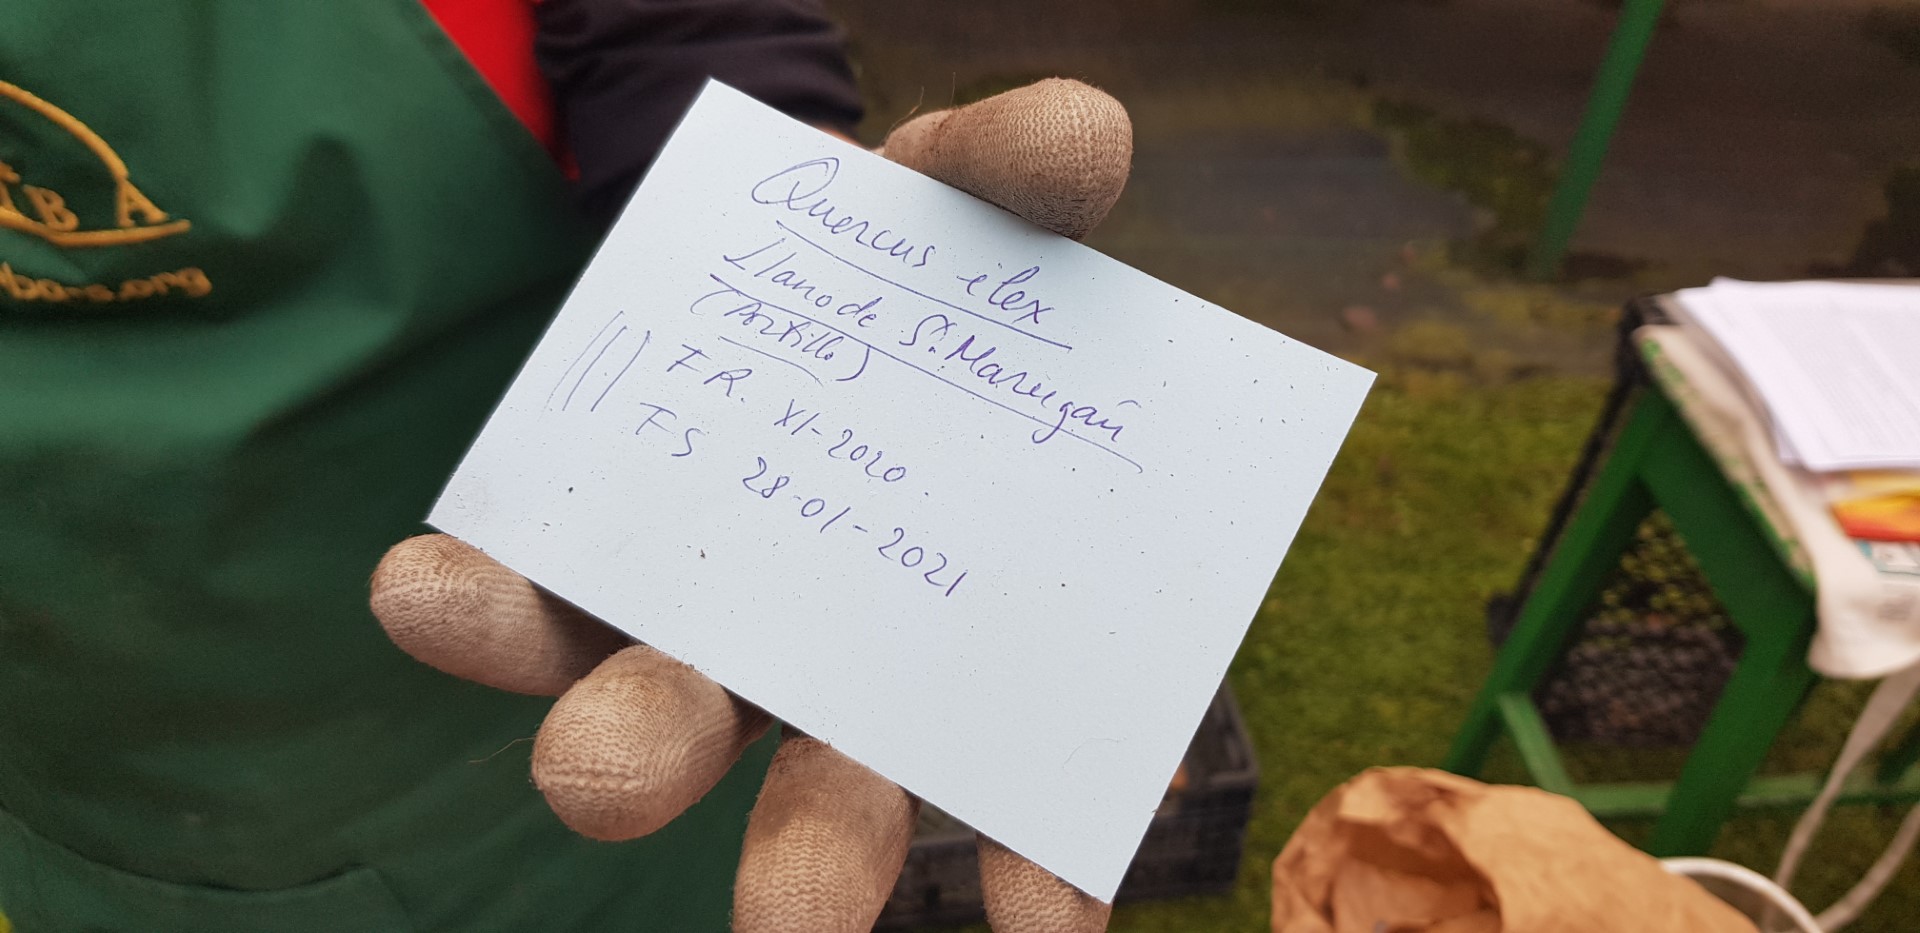 Quercus ilex
Llano de Sn. Marugán
(Portillo)
FR. XI-2020.
FS 28-01-2021
BA